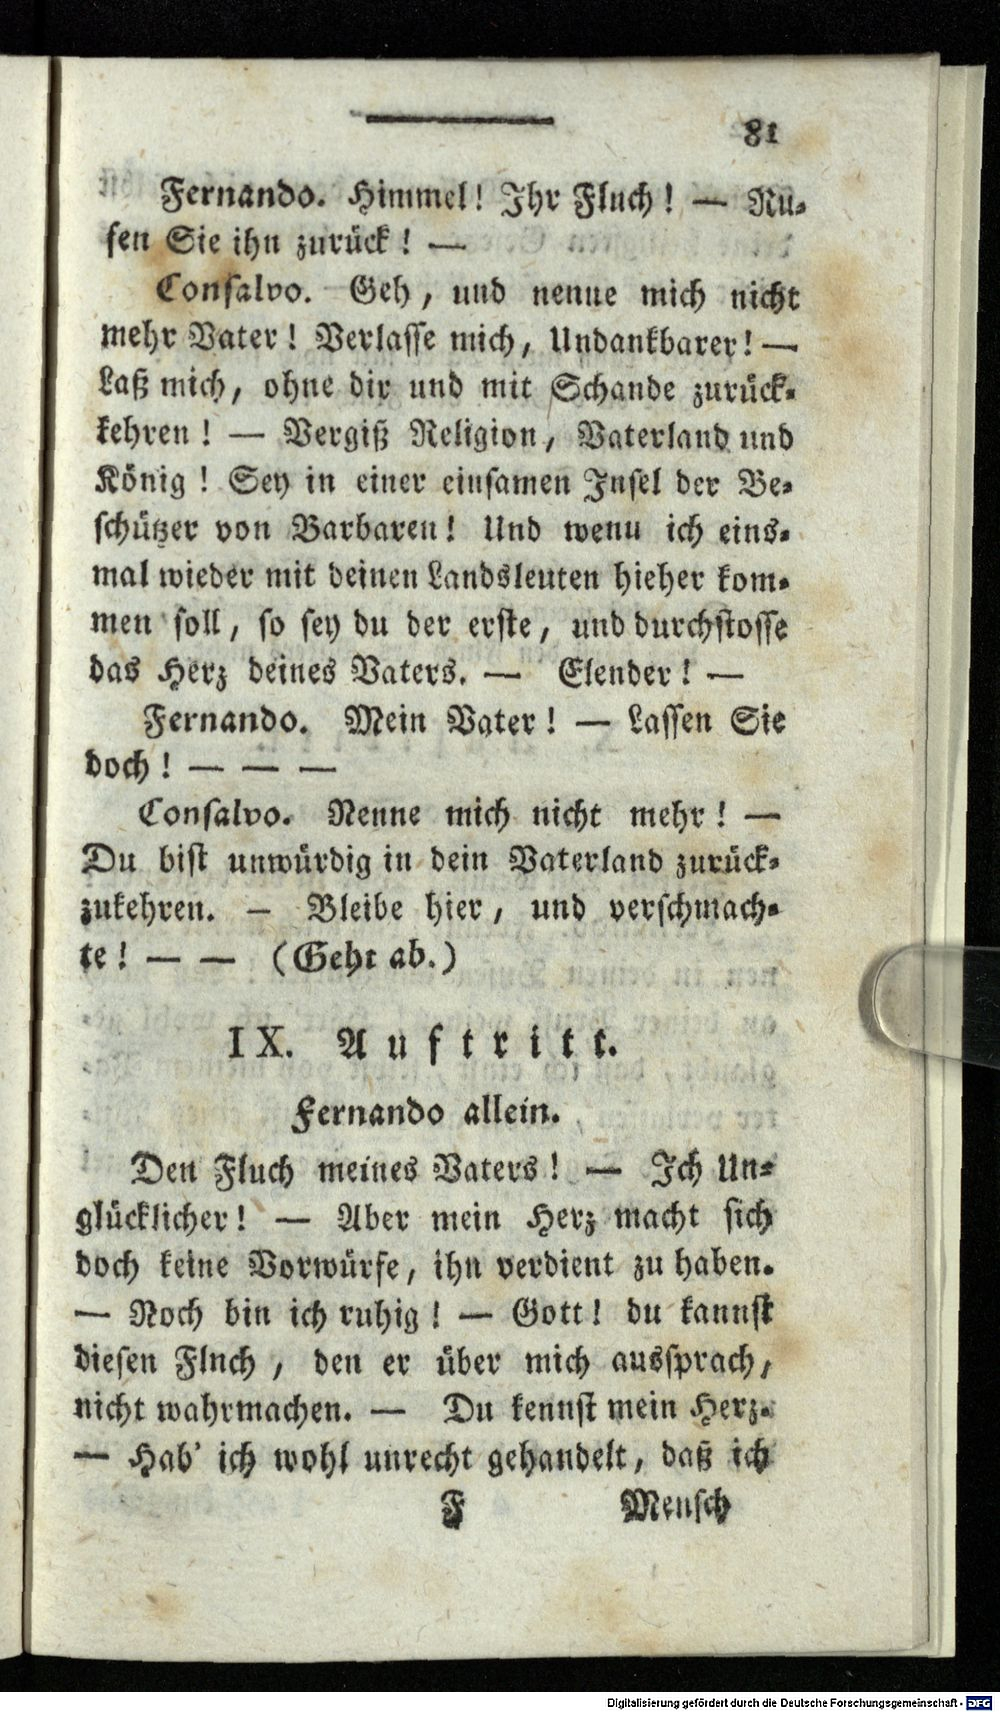 81
Fernando. Himmel! Ihr Fluch! — Ru-
fen Sie ihn zurück! —
Consalvo. Geh, und nenne mich nicht
mehr Vater! Verlasse mich, Undankbarer! —
Laß mich, ohne dir und mit Schande zurück-
kehren! — Vergiß Religion, Vaterland und
König! Sey in einer einsamen Insel der Be-
schützer von Barbaren! Und wenn ich eins-
mal wieder mit deinen Landsleuten hieher kom-
men soll, so sey du der erste, und durchstosse
das Herz deines Vaters. — Elender! —
Fernando. Mein Vater! — Lassen Sie
doch! — — —
Consalvo. Nenne mich nicht mehr! —
Du bist unwürdig in dein Vaterland zurück-
zukehren. — Bleibe hier, und verschmach-
te! — — (Geht ab.)
IX. Auftritt.
Fernando allein.
Den Fluch meines Vaters! — Ich Un-
glücklicher! — Aber mein Herz macht sich
doch keine Vorwürfe, ihn verdient zu haben.
— Noch bin ich ruhig! — Gott! du kannst
diesen Flnch, den er über mich aussprach,
nicht wahrmachen. — Du kennst mein Herz.
— Hab' ich wohl unrecht gehandelt, daß ich
F Mensch
Digitalisierung gefördert durch die Deutsche Forschungsgemeinschaft - DFG